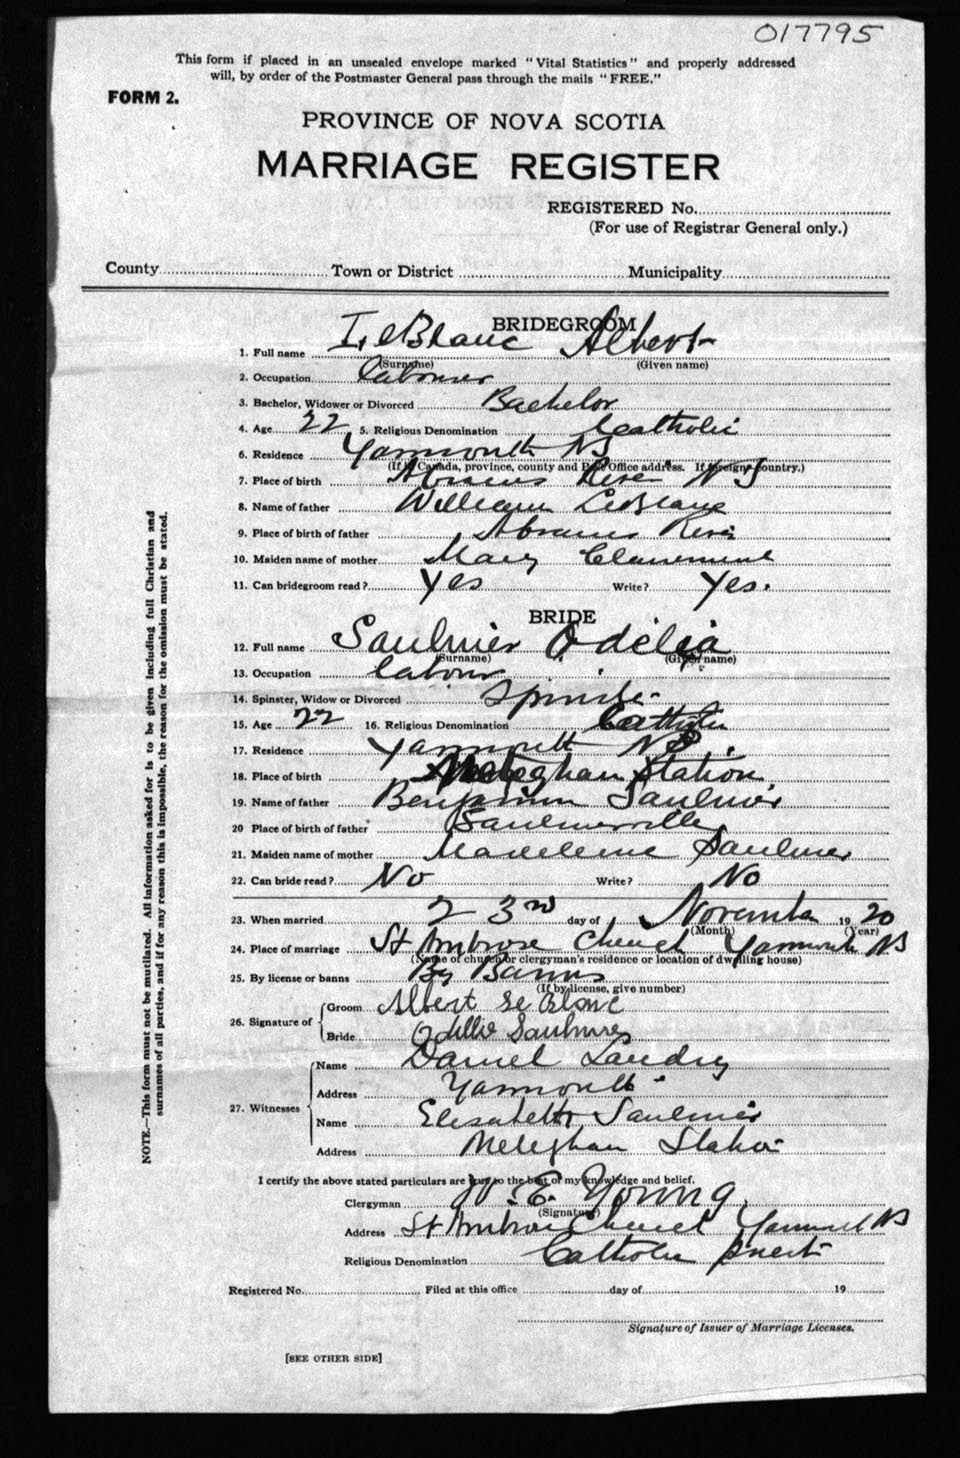 017795
This form if placed in an unsealed envelope marked "Vital Statistics" and properly addressed
will, by order of the Postmaster General pass through the mails "FREE."
FORM 2.
PROVINCE OF NOVA SCOTIA
MARRIAGE REGISTER
REGISTERED No.
(For use of Registrar General only.)
County Town or District Municipality
BRIDEGROOM
1. Full name LeBlanc Albert
(Surname) (Given name)
2. Occupation Labourer
3. Bachelor, Widower or Divorced Bachelor
4. Age 22 5. Religious Denomination Catholic
6. Residence Yarmouth NS
(If in Canada, province, county and Post Office address. If foreign, country.)
7. Place of birth Abrams River NS
8. Name of father William LeBlanc
9. Place of birth of father Abrams River
10. Maiden name of mother Mary
11. Can bridegroom read? Yes Write? Yes.
BRIDE
12. Full name Saulnier Odelia
(Surname) (Given name)
13. Occupation labour
14. Spinster, Widow or Divorced Spinster
15. Age 22 16. Religious Denomination Catholic
17. Residence Yarmouth NS.
18. Place of birth Meteghan Station
19. Name of father Benjamin Saulnier
20 Place of birth of father Saulnierville
21. Maiden name of mother Madeleine Saulnier
22. Can bride read? No Write? No
23. When married 23rd day of November 1920
(Month) (Year)
24. Place of marriage St Ambrose Church Yarmouth NS
(Name of church or clergyman's residence or location of dwelling house)
25. By license or banns By Banns
(If by license, give number)
26. Signature of Groom Albert le Blanc
Bride Odillie Saulnier
27. Witnesses Name Daniel Landry
Address Yarmouth
Name Elisabeth Saulnier
Address Meteghan Station
I certify the above stated particulars are true to the best of my knowledge and belief.
Clergyman W. E. Young
(Signature)
Address St Ambrose Church Yarmouth NS
Religious Denomination Catholic priest
Registered No. Filed at this office day of 19
Signature of Issuer of Marriage Licenses.
[SEE OTHER SIDE]
NOTE.—This form must not be mutilated. All information asked for is to be given including full Christian and
surnames of all parties, and if for any reason this is impossible, the reason for the omission must be stated.